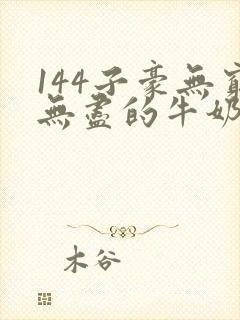 144子豪無窮
無盡的牛奶
木谷